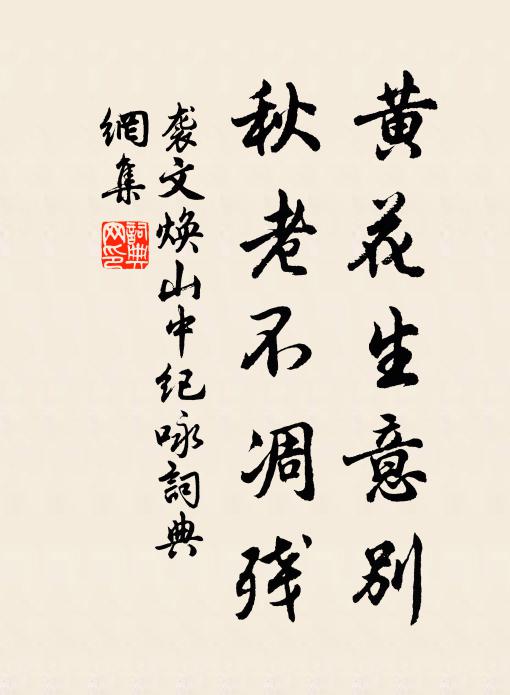 黄花生意别
秋老不凋残
裘文焕山中纪咏詞典
網集
詞典网印